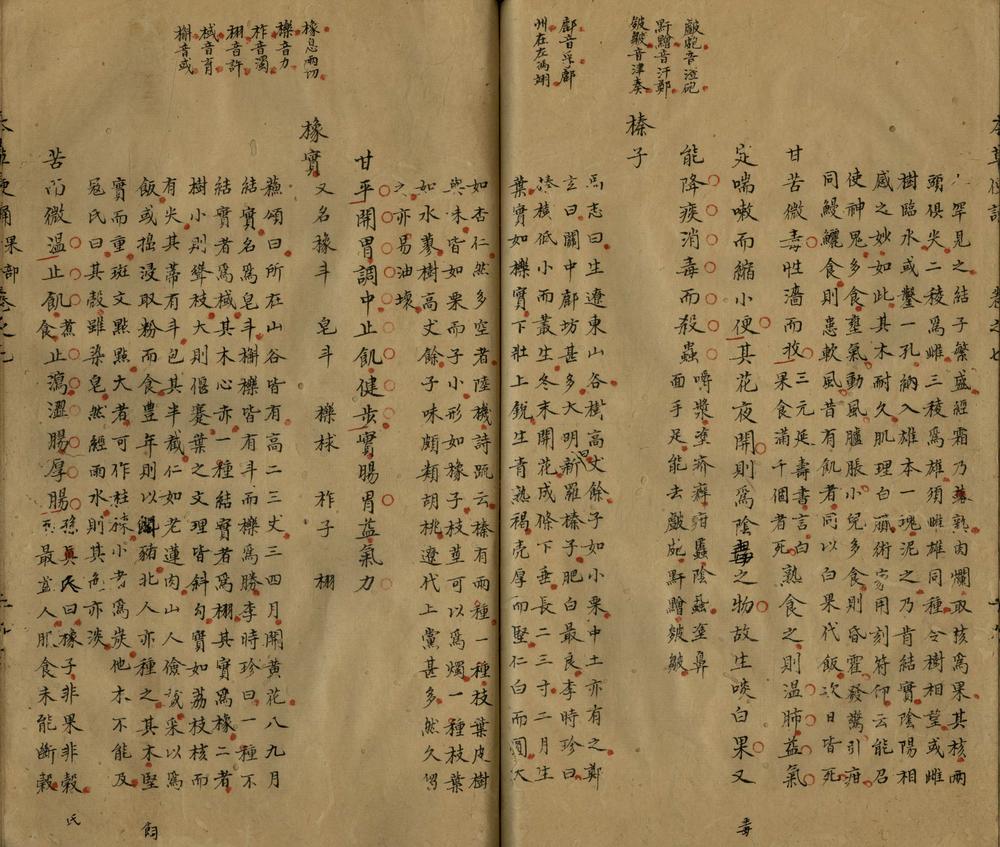 人罕見之結子繁盛經霜乃熟爛取核爲果其核兩
頭俱尖二稜爲雌三稜爲雄須雌雄同種令樹相望或雌
樹臨水或鑿一孔納入雄木一塊泥之乃肯結實陰陽相
感之妙如此其木耐久肌理白膩術家用刻符印云能召
使神鬼多食壅氣動風臚脹小兒多食則昏霍發驚引疳
同鰻鱺食則患軟風昔有飢者同以白果代飯次日皆死
甘苦微毒性濇而收三元延壽書言白果食滿千個者死熟食之則溫肺益氣
定喘嗽而縮小便其花夜開則爲陰毒之物故生啖白果又
能降痰消毒而殺蟲嚼漿塗疥癬疳䘌陰蝨塗鼻面手足能去皶皰䵟䵳皴皺
皶皰音渣砲
䵟䵳音汗鄭
皴皺音津奏
榛子
鄜音孚鄜
州在左馮翊
馬志曰生遼東山谷樹高丈餘子如小栗中土亦有之鄭
玄曰關中鄜坊甚多大明曰新羅榛子肥白最良李時珍曰
榛樹低小而叢生冬末開花成條下垂長二三寸二月生
葉實如櫟實下壯上銳生青熟褐壳厚而堅仁白而圓大
如杏仁然多空者陸機詩疏云榛有兩種一種枝葉皮樹
與味皆如栗而子小形如橡子枝莖可以爲燭一種枝葉
如水蓼樹高丈餘子味頗類胡桃遼代上黨甚多然久留
之亦易油壞
甘平開胃調中止飢健步實腸胃益氣力
橡實又名橡斗 皂斗 櫟梂 柞子 栩
橡息兩切
櫟音力
柞音濁
栩音許
棫音育
槲音或
蘇頌曰所在山谷皆有高二三丈三四月開黃花八九月
結實名爲皂斗槲櫟皆有斗而櫟爲勝李時珍曰一種不
結實者爲棫其木心赤一種結實者爲栩其實爲橡二者
樹小則聳枝大則偃蹇葉之文理皆斜勾實如荔枝核而
有尖其蒂有斗包其半截仁如老蓮肉山人儉歲采以爲
飯或搗浸取粉而食豊年則以飼豬北人亦種之其木堅
實而重斑文點點大者可作柱棟小者爲炭他木不能及
冦氏曰其殼雖染皂然經雨水則其色亦淡
苦而微溫止飢食煮止瀉澀腸厚腸孫真人曰橡子非果非穀最益人服食未能斷穀
毒
飼
氏